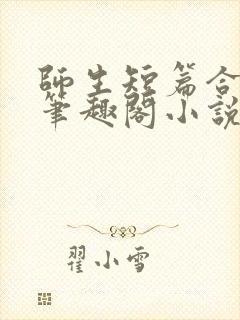 師生短篇合
筆趣閣小說
翟小雪